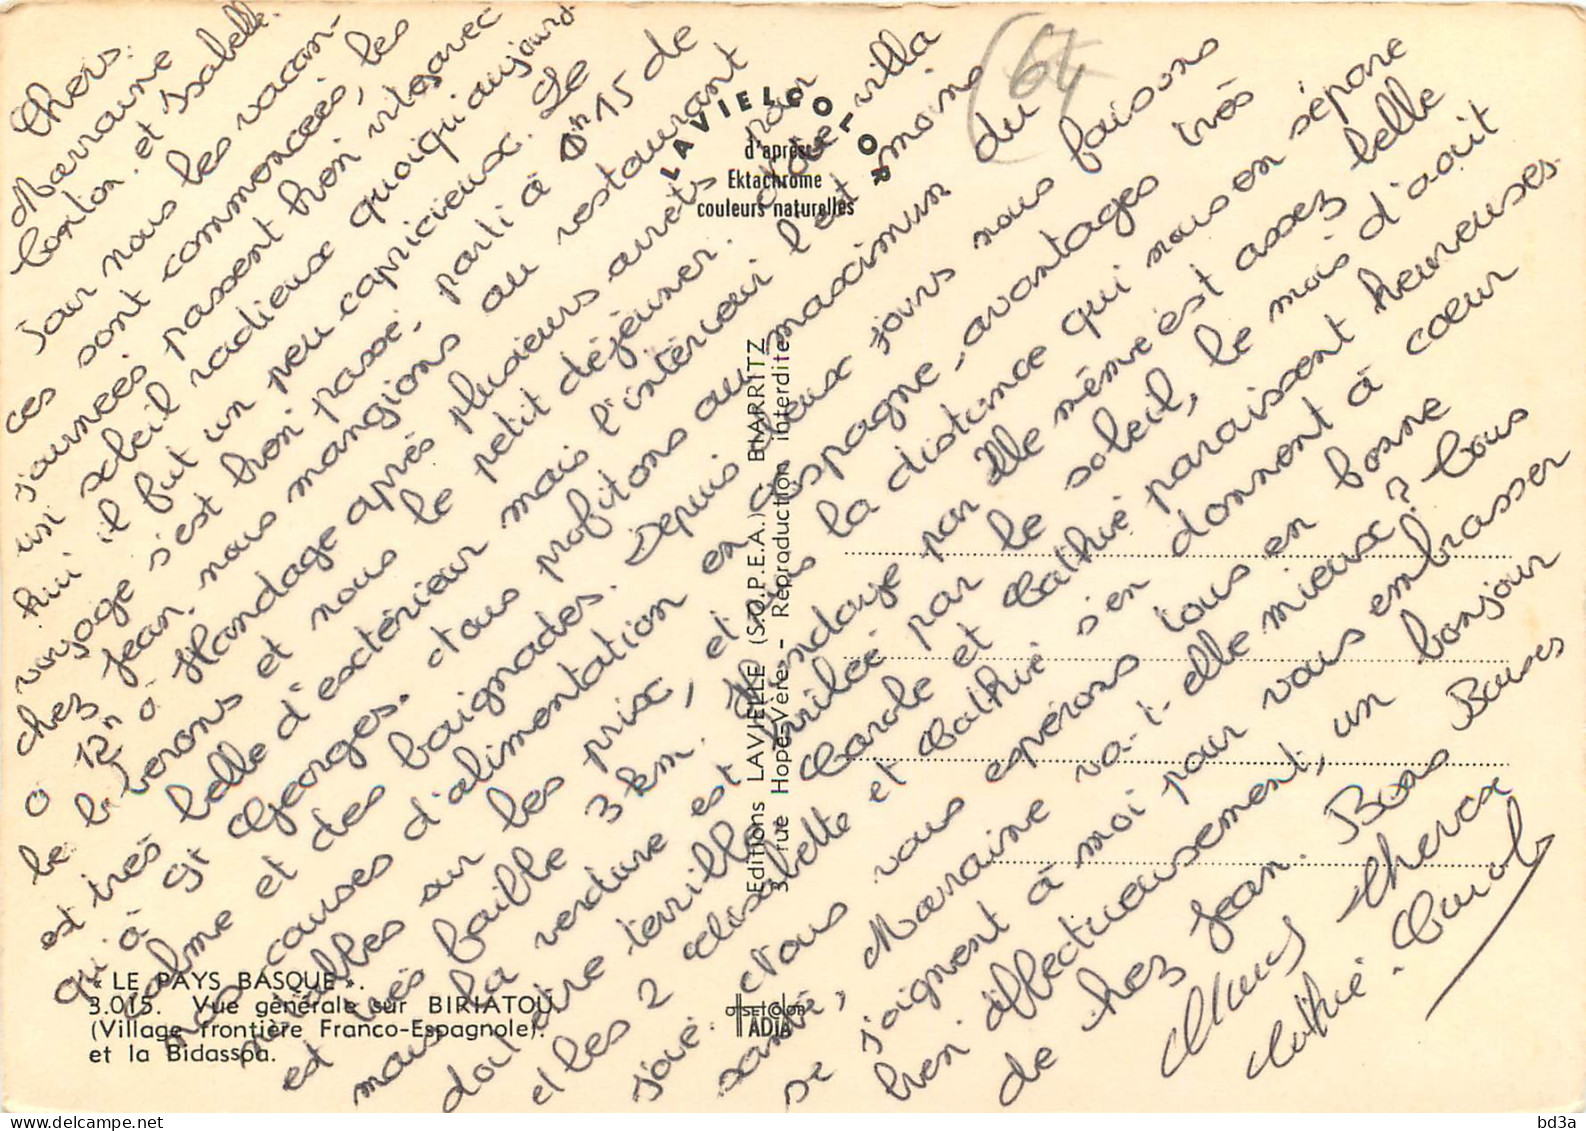 Chers
Marraine
Tonton. et Isabelle.
Pour nous les vacan-
ces sont commencées, les
journées passent bien vite avec
un soleil radieux quoiqu'aujourd-
hui il fut un peu capricieux. Le
voyage s'est bien passé, parti à 0h 15 de
chez Jean nous mangions au restaurant
à 12h à Handage après plusieurs arrêts pour
le biberons et nous le petit déjeuner. La villa
est très belle d'extérieur mais l'intérieur l'est moins
qu'à St Georges. Nous profitons au maximum du
calme et des baignades. Depuis deux jours nous faisons
nos courses d'alimentation en Espagne, avantages très
faibles sur les prix, et puis la distance qui nous en sépare
est très faible 3 km. Hendaye par elle même est assez belle
mais la verdure est brûlée par le soleil, le mois d'août
doit être terrible. Carole et Cathie paraissent heureuses
et les 2 Isabelle et Cathie s'en donnent à coeur
joie. Nous vous espérons tous en bonne
santé, Marraine va-t-elle mieux? Tous
se joignent à moi pour vous embrasser
bien affectueusement, un bonjour
de chez Jean. Bons Baisers
Cathie. Carol
(64
LAVIELCOLOR
d'après
Ektachrome
couleurs naturelles
Editions LAVIELLE (S.O.P.E.A.) BIARRITZ
3, rue Hope-Vère - Reproduction interdite
« LE PAYS BASQUE ».
3.015. Vue générale sur BIRIATOU
(Village frontière Franco-Espagnole).
et la Bidassoa.
OffsetColor
ADIA
bd3a